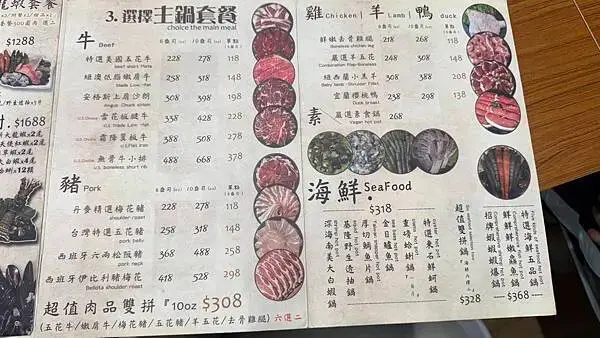 $1288
$1688
3. 選擇主鍋套餐
choice the main meal
牛 Beef 6盎司(oz) 10盎司(oz) 單點
特選美國五花牛 228 278 118
beef short Plate
紐澳低脂嫩肩牛 258 318 148
安格斯上肩沙朗 308 398 198
Angus Chuck sirloin
U.S.Choice 雪花板腱牛 338 428 228
U.S.Choice 霜降翼板牛 388 508 278
U.S.Choice 無骨牛小排 488 668 378
U.S. boneless short rib
豬 Pork 6盎司(oz) 10盎司(oz) 單點
丹麥精選梅花豬 228 278 118
shoulder roast
台灣特選五花豬 258 318 148
pork belly
西班牙六兩松阪豬 368 488 258
pork neck
西班牙伊比利豬梅花 418 528 298
Bellota shoulder roast
超值肉品雙拼『10oz $308
(五花牛/嫩肩牛/梅花豬/五花豬/羊五花/去骨雞腿) 六選二
雞 Chicken 羊 Lamb 鴨 duck
鮮嫩去骨雞腿 218 268 118
Boneless chicken leg
嚴選羊五花 248 308 148
紐西蘭小羔羊 308 388 208
宜蘭櫻桃鴨 238 298 138
Duck breast
素 嚴選素食鍋 268
Vegan hot pot
海鮮 SeaFood
特選海鮮五品鍋
鮮蝦嫩蟲魚鍋
招牌蝦蝦爆鍋
$368
超值雙拼鍋
$328
$318
特選東石鮮蚵鍋
重磅蛤蜊鍋
金目鱸魚鍋
厚切鯛魚片鍋
基隆野生透抽鍋
深海南美大白蝦鍋